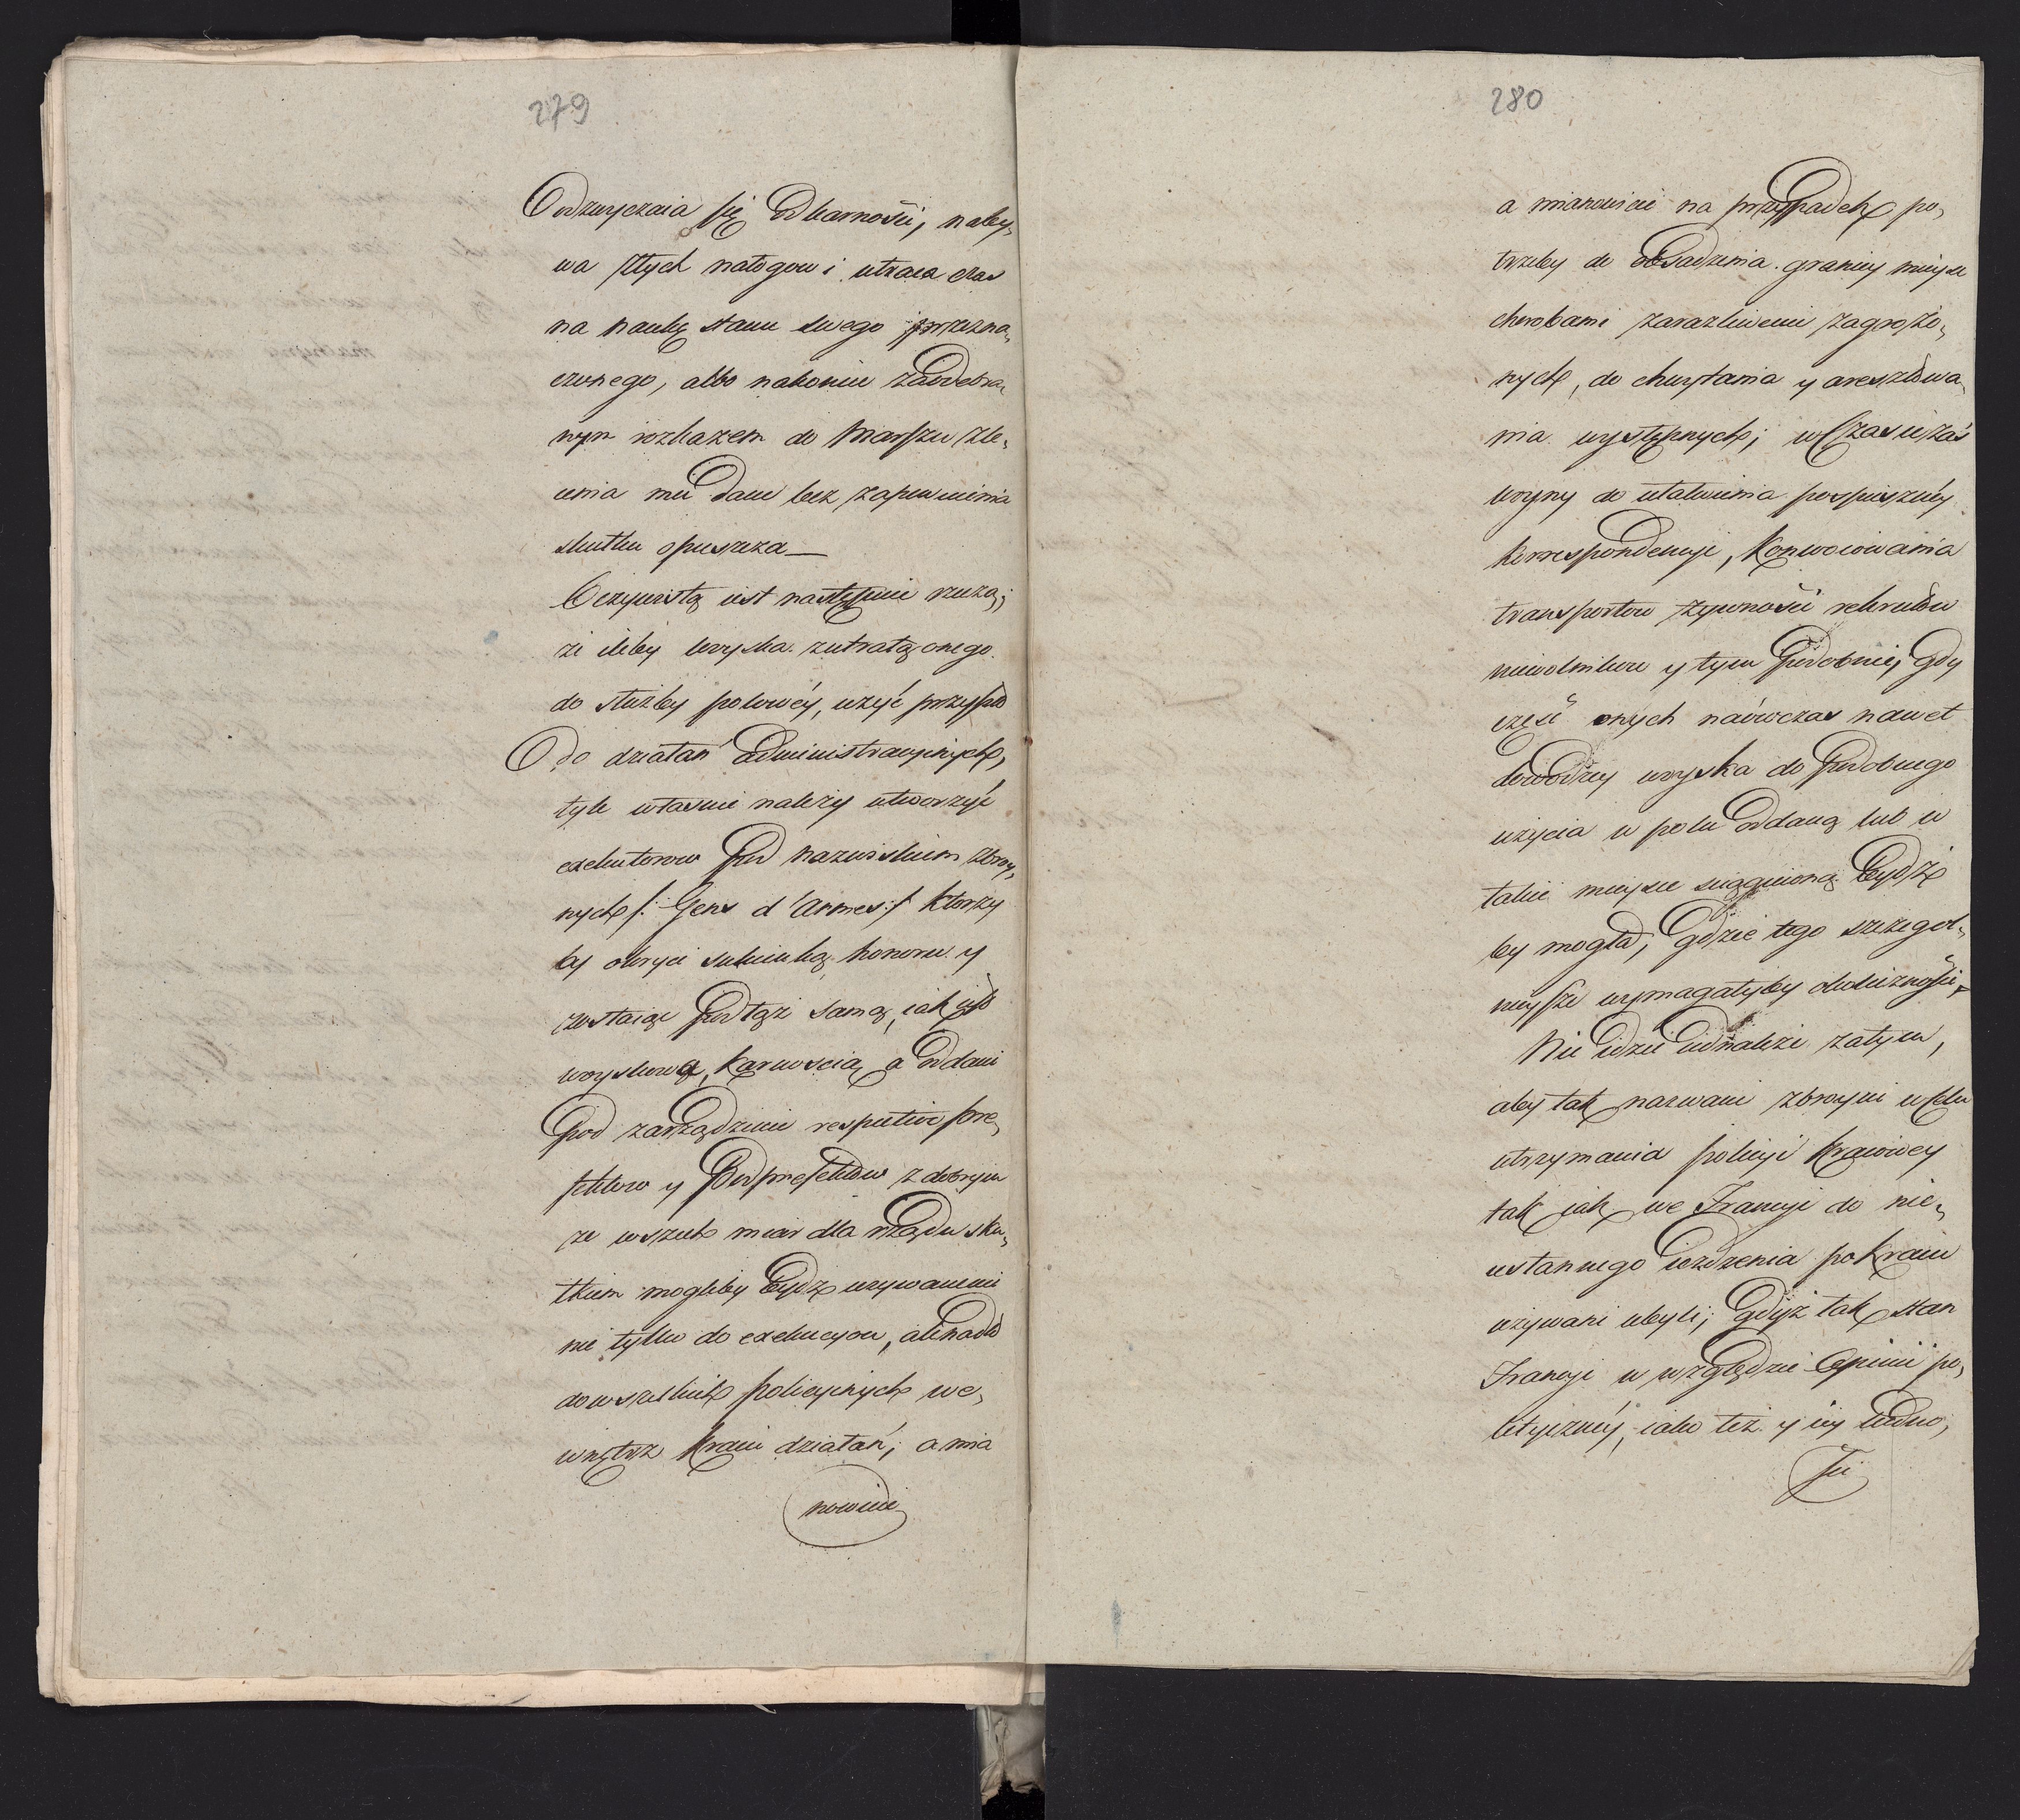 279
Odzwyczaia się od karności, naby„
wa złych nałogow i utraca czas
na naukę stanu swego przezna„
czonego, albo nakoniec za odebra„
nym rozkazem do Marszu zle„
cenia mu dane bez zapewnienia
skutku opuszcza —
Oczywistą iest następnie rzeczą;
że ileby woyska z utratą onego
do służby polowéy, użyć przyszło
do działań administracyinych,
tyle własnie należy utworzyć
exekutorow pod nazwiskiem zbroy„
nych /: Gens d'Armes :/ ktorzy
by okryci sukienką honoru y
zostaiąc pod tąż samą, iak iest
woyskowa, karnoscią, a oddani
pod zarządzenie respective Pre„
fektow y Podprefektow z dobrym
ze wszech miar dla rządu sku„
tkiem mogliby bydź używanemi
nie tylko do exekucyow, ale nadto
do wszelkich policyinych we„
wnątrz kraiu działań; a mia
nowicie
280
a mianowicie na przypadek po„
trzeby do obsadzenia granicy mieysc
chorobami zarazliwemi zagrożo„
nych, do chwytania y aresztowa„
nia występnych; w czasie zaś
woyny do ułatwienia pospieszney
korrespondencyi, konwoiowania
transportow żywności rekrutów
niewolnikow y tym podobnie, gdy
część onych naówczas nawet
dowodzcy woyska do podobnego
użycia w polu oddaną lub w
takie mieysce sciągnioną bydź
by mogła, gdzie tego szczegol„
nieysze wymagałyby okoliczności,
Nie idzie iednakże zatym,
aby tak nazwani zbroyni w celu
utrzymania policyi kraiowey
tak iak we Francyi do nie„
ustannego ieżdzenia po kraiu
używani byli; gdyż tak stan
Francyi w względzie Opinii po„
lityczney, iako też y iey ludno„
ści